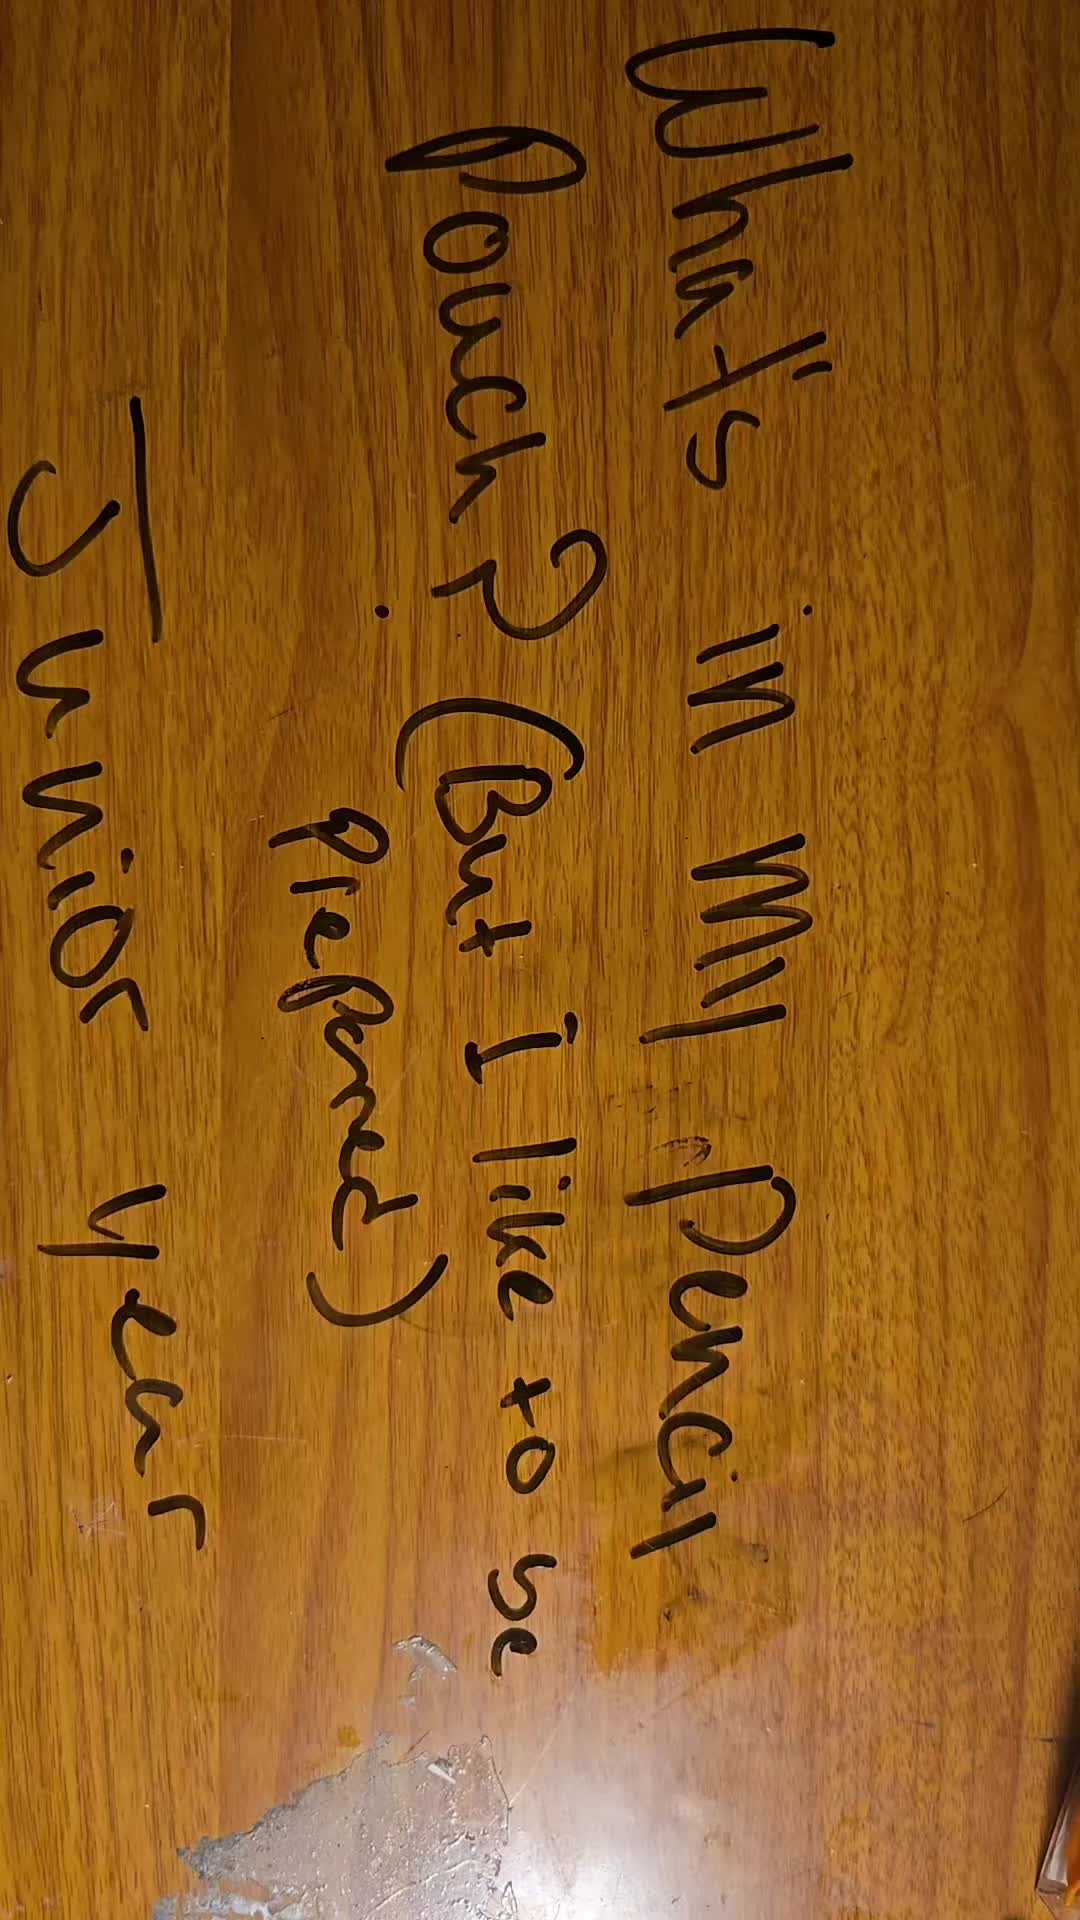 What's in my pencil
pouch? (But I like to be
prepared)
Junior year